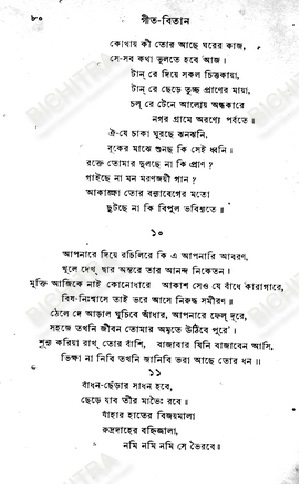 ৮০
গীত-বিতান
কোথায় কী তোর আছে ঘরের কাজ,
সে-সব কথা ভুলতে হবে আজ।
টান্ রে দিয়ে সকল চিত্তকায়া,
টান্ রে ছেড়ে তুচ্ছ প্রাণের মায়া,
চল্ রে টেনে আলোয় অন্ধকারে
নগর গ্রামে অরণ্যে পর্বতে॥
ঐ-যে চাকা ঘুরছে ঝনঝনি,
বুকের মাঝে শুনছ কি সেই ধ্বনি।
রক্তে তোমার দুলছে না কি প্রাণ?
গাইছে না মন মরণজয়ী গান?
আকাঙ্ক্ষা তোর বন্যাবেগের মতো
ছুটছে না কি বিপুল ভবিষ্যতে॥
১০
আপনারে দিয়ে রচিলিরে কি এ আপনারি আবরণ,
খুলে দেখ্ দ্বার অন্তরে তার আনন্দ নিকেতন।
মুক্তি আজিকে নাই কোনোধারে আকাশ সেও যে বাঁধে কারাগারে,
বিষ-নিঃশ্বাসে তাই ভরে আসে নিরুদ্ধ সমীরণ॥
ঠেলে দে আড়াল ঘুচিবে আঁধার, আপনারে ফেল্ দূরে,
সহজে তখনি জীবন তোমার অমৃতে উঠিবে পূরে'।
শূন্য করিয়া রাখ্ তোর বাঁশি, বাজাবার যিনি বাজাবেন আসি,
ভিক্ষা না নিবি তখনি জানিবি ভরা আছে তোর ধন॥
১১
বাঁধন-ছেঁড়ার সাধন হবে,
ছেড়ে যাব তীর মাভৈঃ রবে॥
যাঁহার হাতের বিজয়মালা
রুদ্রদাহের বহ্নিজ্বালা,
নমি নমি নমি সে ভৈরবে॥
BICHITRA